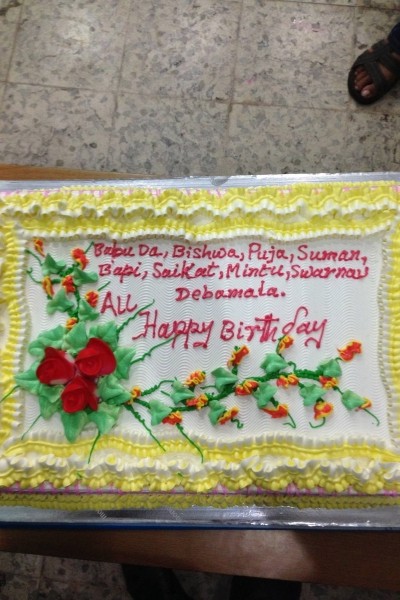 Babu Da, Bishwa, Puja, Suman,
Bapi, Saikat, Mintu, Swarnav
Debamala.
All
Happy Birthday